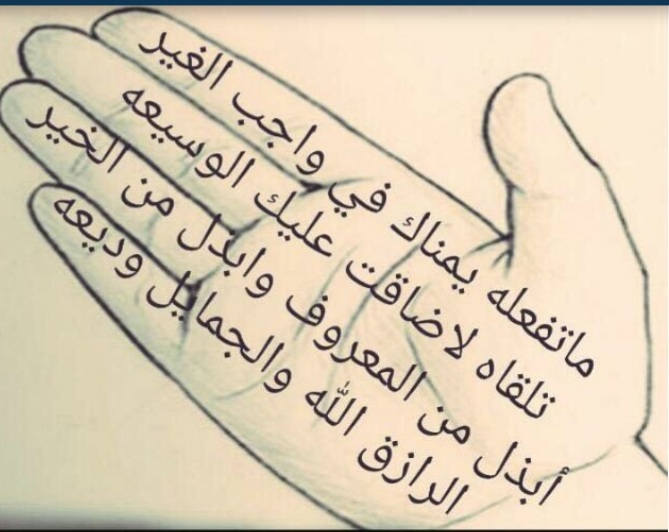 ماتفعله يمناك في واجب الغير
تلقاه لاضاقت عليك الوسيعه
أبذل من المعروف وابذل من الخير
الرازق الله والجمايل وديعه